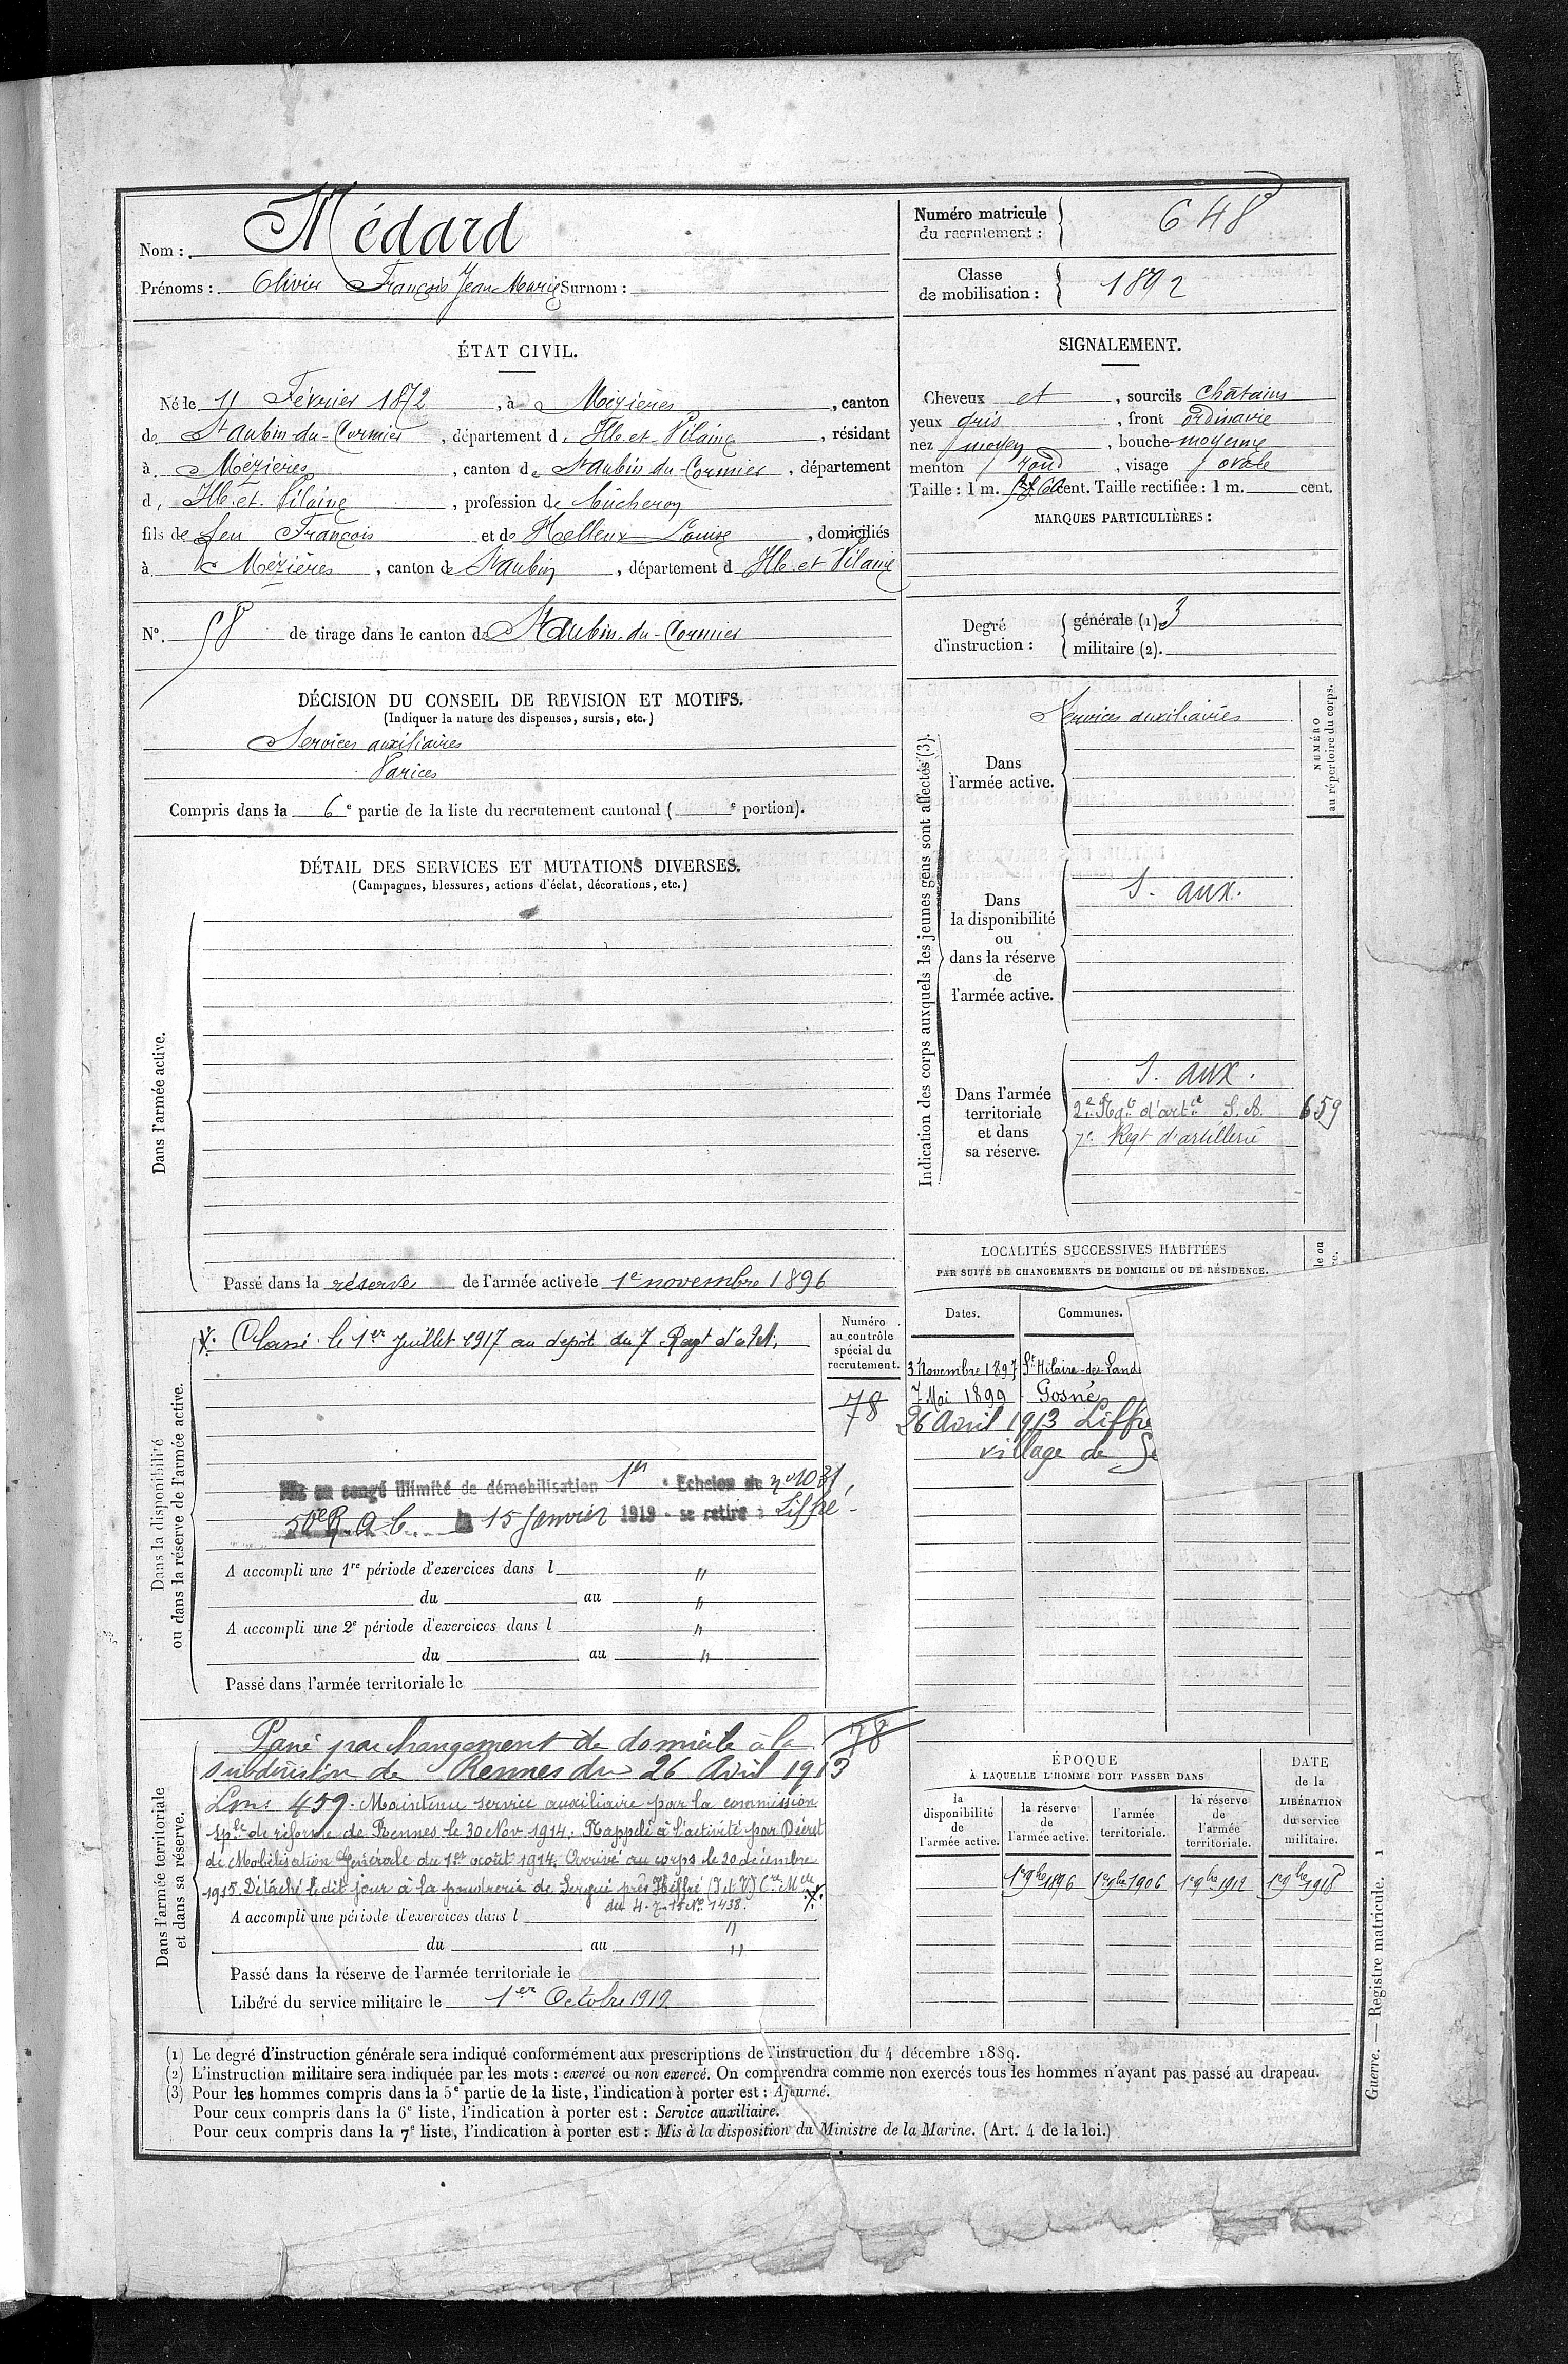 Nom : Médard
Prénoms : Olivier François Jean Marie Surnom :
Numéro matricule du recrutement : 648
Classe de mobilisation : 1892
ÉTAT CIVIL.
Né le 11 Février 1872, à Mézières, canton
de St Aubin-du-Cormier, département d'Ille-et-Vilaine, résidant
à Mézières, canton de St Aubin du-Cormier, département
d'Ille-et-Vilaine, profession de bûcheron
fils de feu François et de Helleux Louise, domiciliés
à Mézières, canton de St Aubin, département d'Ille-et-Vilaine
N°. 58 de tirage dans le canton de St Aubin-du-Cormier
SIGNALEMENT.
Cheveux et, sourcils châtains
yeux gris, front ordinaire
nez moyen, bouche moyenne
menton rond, visage ovale
Taille : 1 m. cent. Taille rectifiée : 1 m. cent.
MARQUES PARTICULIÈRES :
Degré d'instruction : générale (1). 3
militaire (2).
DÉCISION DU CONSEIL DE REVISION ET MOTIFS.
(Indiquer la nature des dispenses, sursis, etc.)
Services auxiliaires
Varices
Compris dans la 6e partie de la liste du recrutement cantonal ( e portion).
DÉTAIL DES SERVICES ET MUTATIONS DIVERSES.
(Campagnes, blessures, actions d'éclat, décorations, etc.)
Dans l'armée active.
Passé dans la réserve de l'armée active le 1e novembre 1896
Indication des corps auxquels les jeunes gens sont affectés (3).
NUMÉRO au répertoire du corps.
Dans l'armée active.
Services auxiliaires
Dans la disponibilité ou dans la réserve de l'armée active.
S. aux.
Dans l'armée territoriale et dans sa réserve.
S. aux.
2e Rgt d'artie S.A. 659
7e Régt d'artillerie
LOCALITÉS SUCCESSIVES HABITÉES
PAR SUITE DE CHANGEMENTS DE DOMICILE OU DE RÉSIDENCE.
Dates. Communes.
3 Novembre 1897 St Hilaire-des-Land
7 Mai 1899 Gosné
26 Avril 1913 Liffré
village de Se
Dans la disponibilité ou dans la réserve de l'armée active.
Numéro au contrôle spécial du recrutement.
78
X. Classé le 1er Juillet 1917 au dépôt du 7 Regt d'art.
Mis en congé illimité de démobilisation 1er Echelon no 1031,
50e R.A.C. le 15 Janvier 1919 - se retire : Liffré -
A accompli une 1re période d'exercices dans l "
du au "
A accompli une 2e période d'exercices dans l "
du au "
Passé dans l'armée territoriale le
Dans l'armée territoriale et dans sa réserve.
78
Passé par changement de domicile à la
subdivision de Rennes du 26 Avril 1913
459. Maintenu service auxiliaire par la commission
sple de réforme de Rennes le 30 Nov 1914. Rappelé à l'activité par Décret
de Mobilisation Générale du 1er août 1914. Arrivé au corps le 20 décembre
1915. Détaché le dit jour à la poudrerie de près (I et V) Cre Mlle
du 4. No 1438. X.
A accompli une période d'exercices dans l
"
du au "
Passé dans la réserve de l'armée territoriale le
Libéré du service militaire le 1er Octobre 1919.
ÉPOQUE
À LAQUELLE L'HOMME DOIT PASSER DANS
DATE de la LIBÉRATION du service militaire.
la disponibilité de l'armée active.
la réserve de l'armée active.
l'armée territoriale.
la réserve de l'armée territoriale.
1er 9bre 1896 1er 9bre 1906 1er 9bre 1912 1er 9bre 1918
(1) Le degré d'instruction générale sera indiqué conformément aux prescriptions de l'instruction du 4 décembre 1889.
(2) L'instruction militaire sera indiquée par les mots : exercé ou non exercé. On comprendra comme non exercés tous les hommes n'ayant pas passé au drapeau.
(3) Pour les hommes compris dans la 5e partie de la liste, l'indication à porter est : Ajourné.
Pour ceux compris dans la 6e liste, l'indication à porter est : Service auxiliaire.
Pour ceux compris dans la 7e liste, l'indication à porter est : Mis à la disposition du Ministre de la Marine. (Art. 4 de la loi.)
Guerre. — Registre matricule. 1